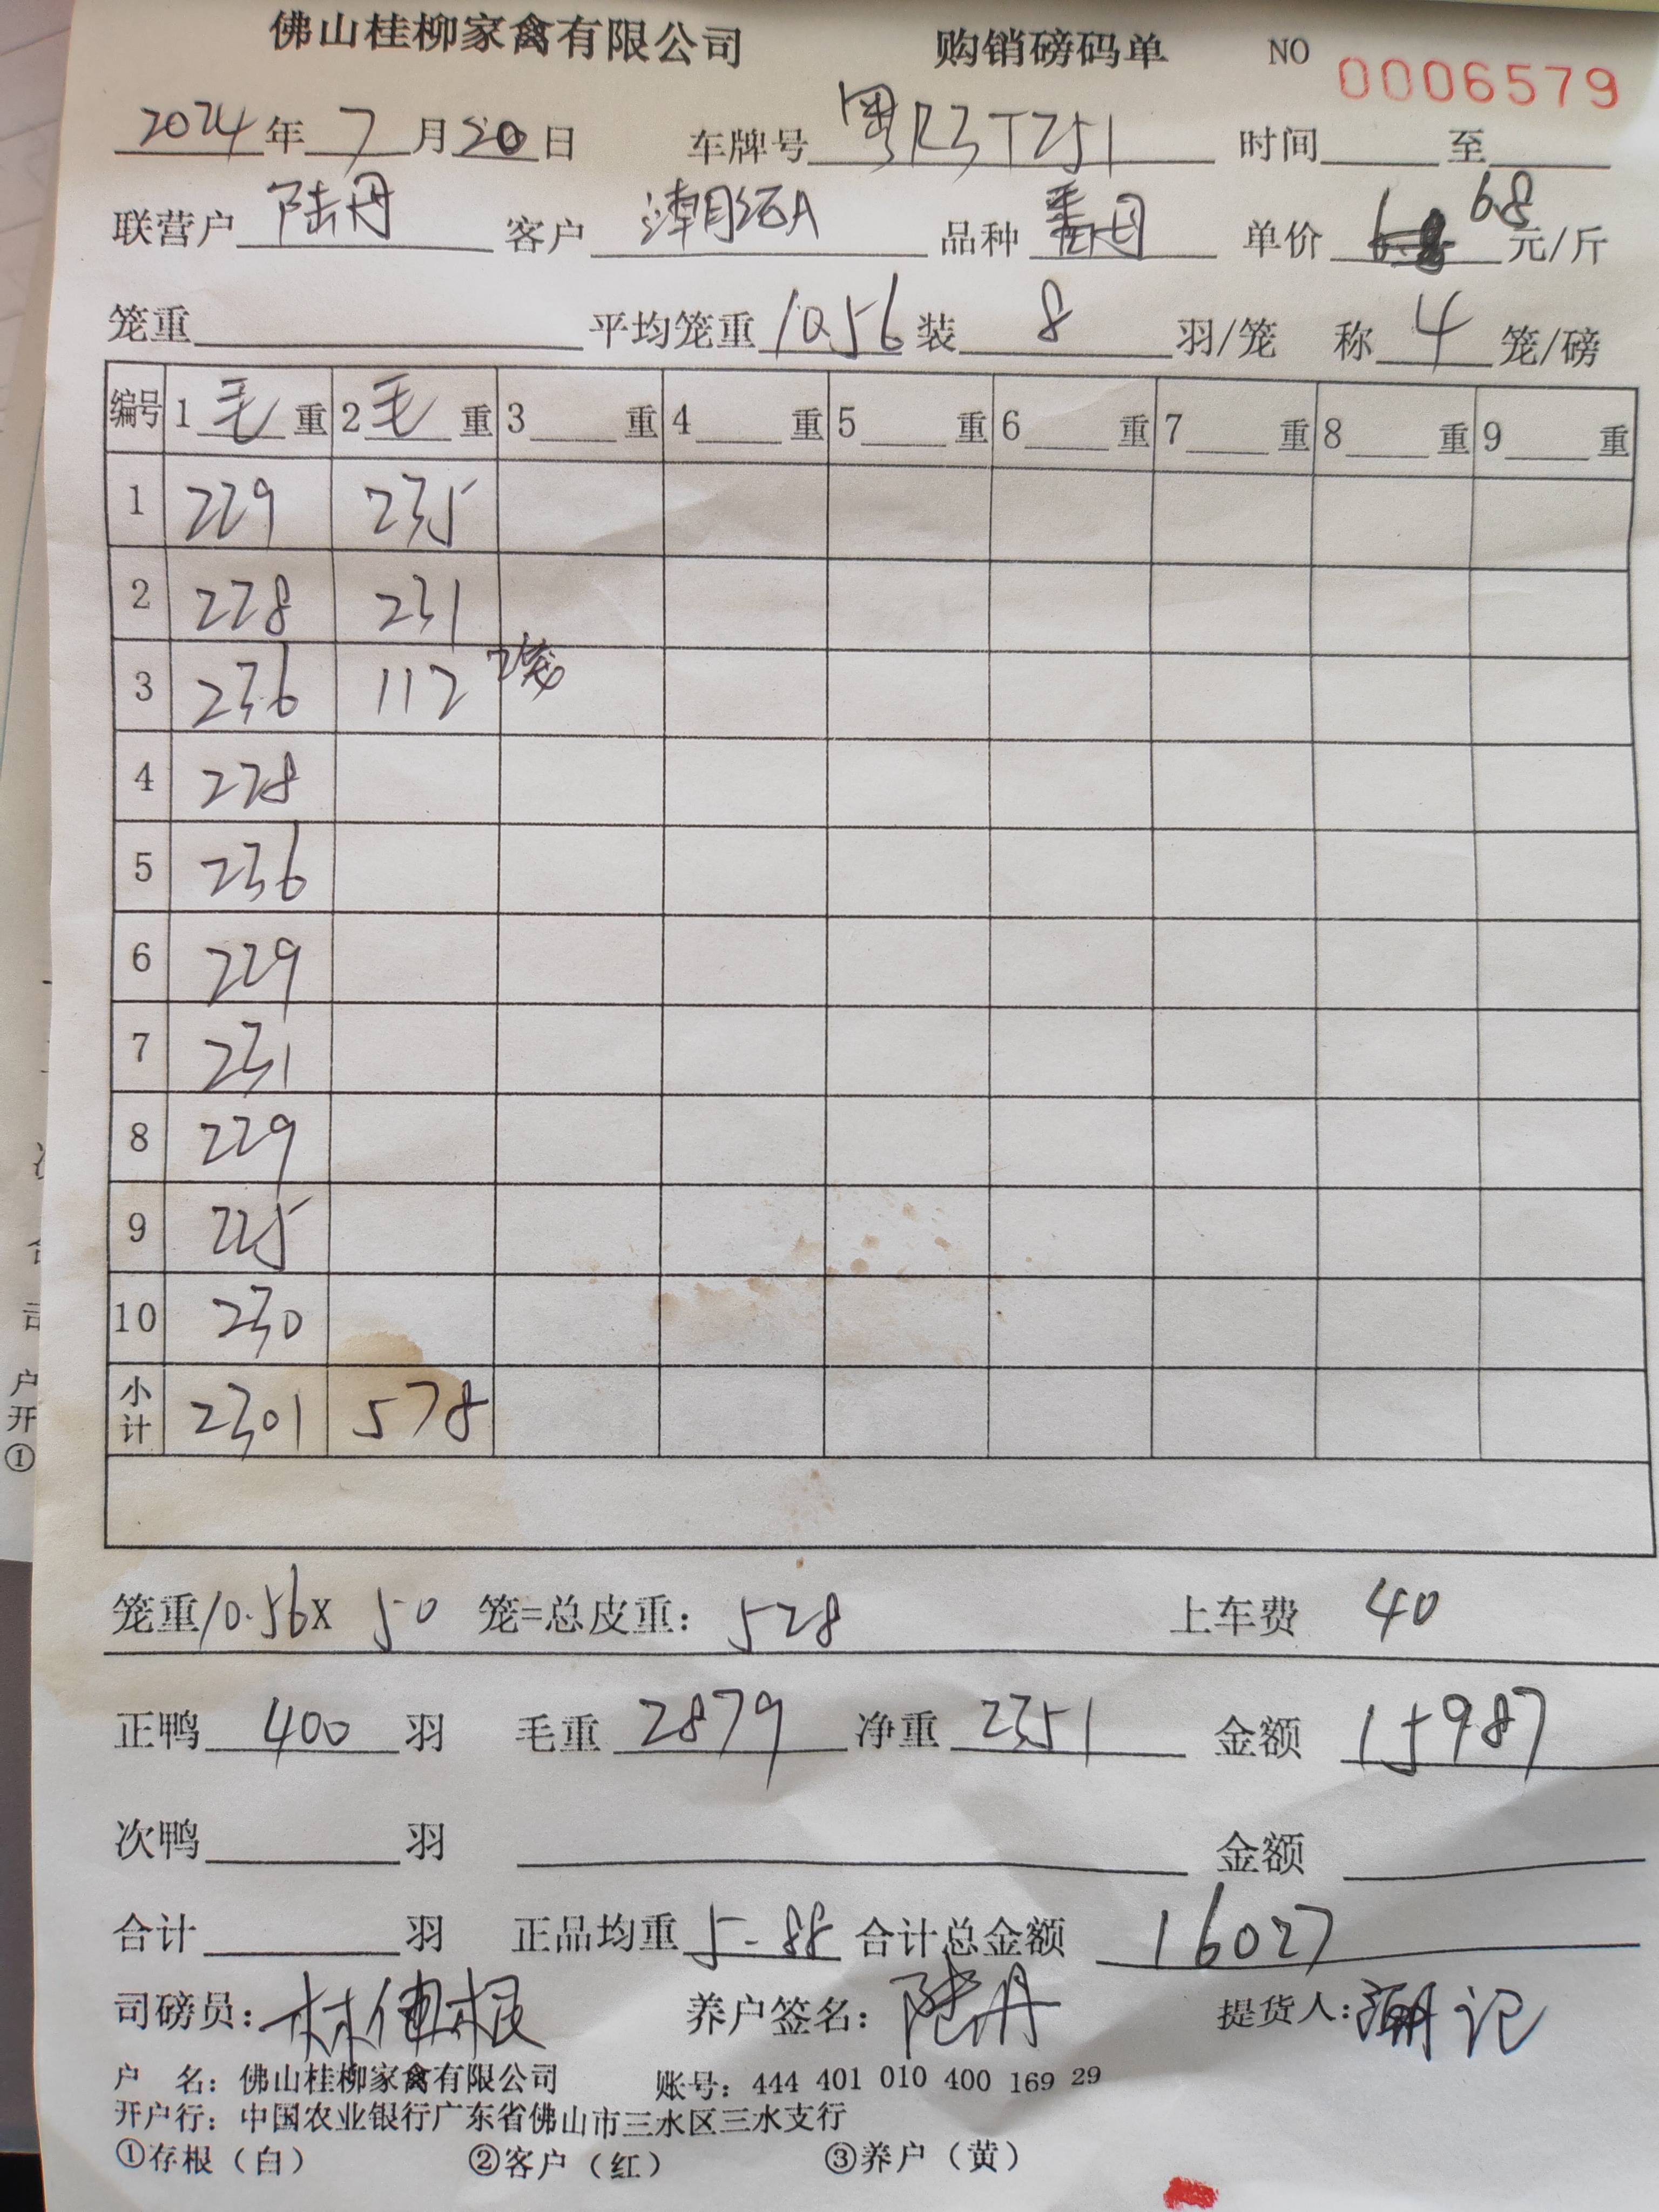 佛山桂柳家禽有限公司 购销磅码单 NO 0006579
2024年 7 月 20 日 车牌号 粤R3T251 时间 至
联营户 陆丹 客户 潮记A 品种 单价 6.8 元/斤
笼重 平均笼重 10.56 装 8 羽/笼 称 4 笼/磅
编号 1 毛 重 2 毛 重 3 重 4 重 5 重 6 重 7 重 8 重 9 重
1 229 235
2 228 231
3 236 112 2笼
4 228
5 236
6 229
7 231
8 229
9 225
10 230
小计 2301 578
笼重10.56X 50 笼=总皮重: 528 上车费 40
正鸭 400 羽 毛重 2879 净重 2351 金额 15987
次鸭 羽 金额
合计 羽 正品均重 5-88 合计总金额 16027
司磅员: 养户签名: 陆丹 提货人: 潮记
户 名: 佛山桂柳家禽有限公司 账号: 444 401 010 400 169 29
开户行: 中国农业银行广东省佛山市三水区三水支行
①存根（白） ②客户（红） ③养户（黄）